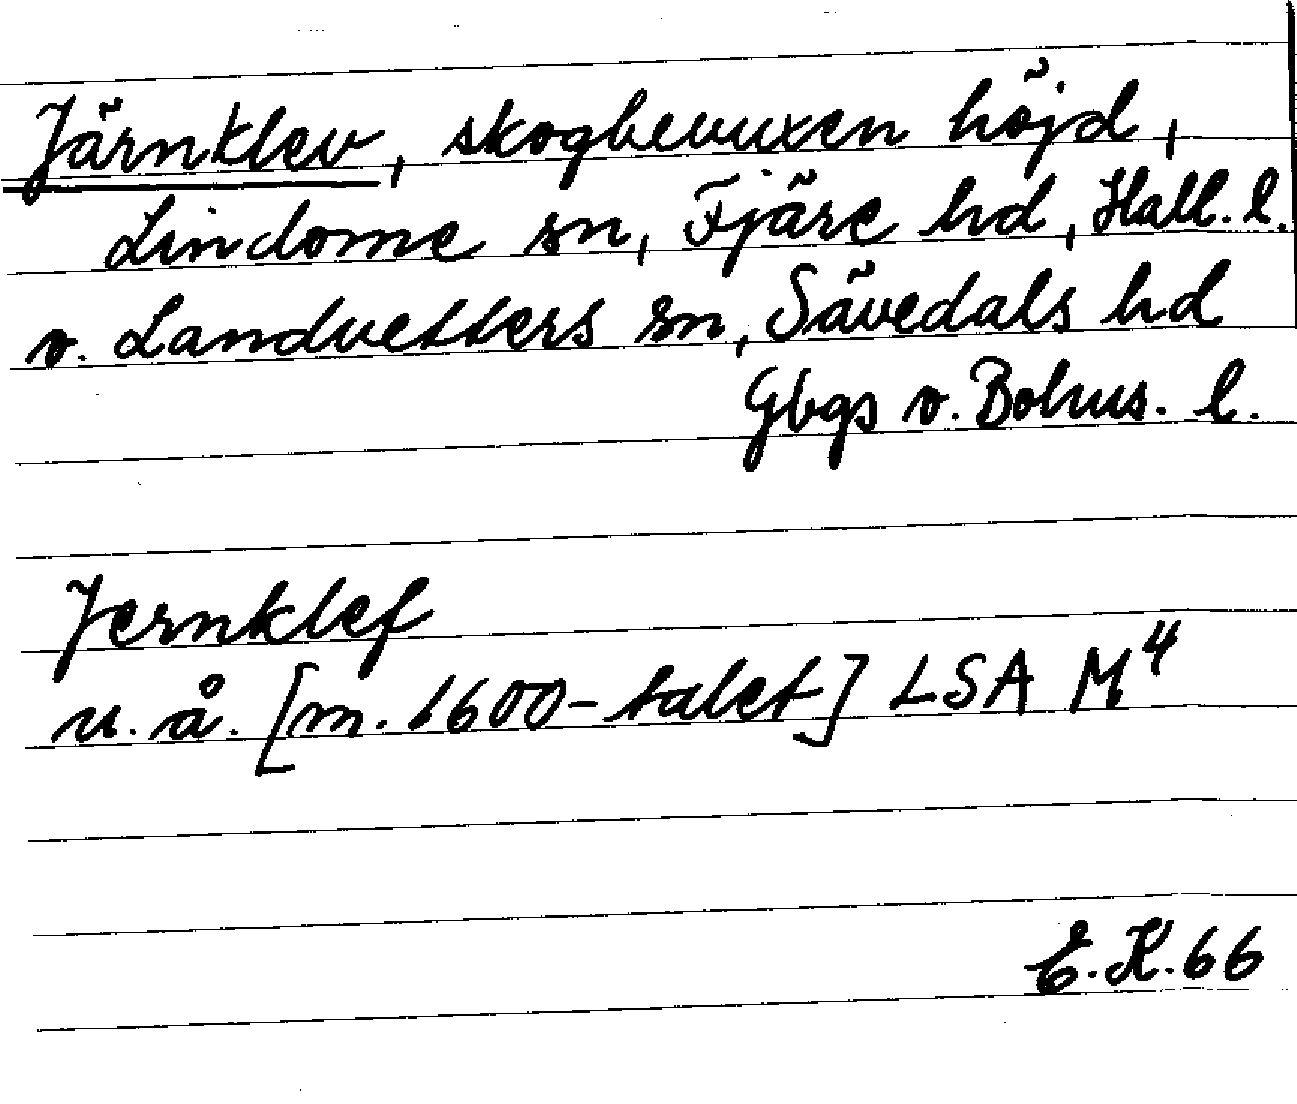 Järnklev, skogbevuxen höjd,
Lindome sn, Fjäre hd, Hall. l.
o. Landvetters sn, Sävedals hd
Gbgs o. Bohus. l.
Jernklef
u. å. [m. 1600-talet] LSA M4
E.K. 66